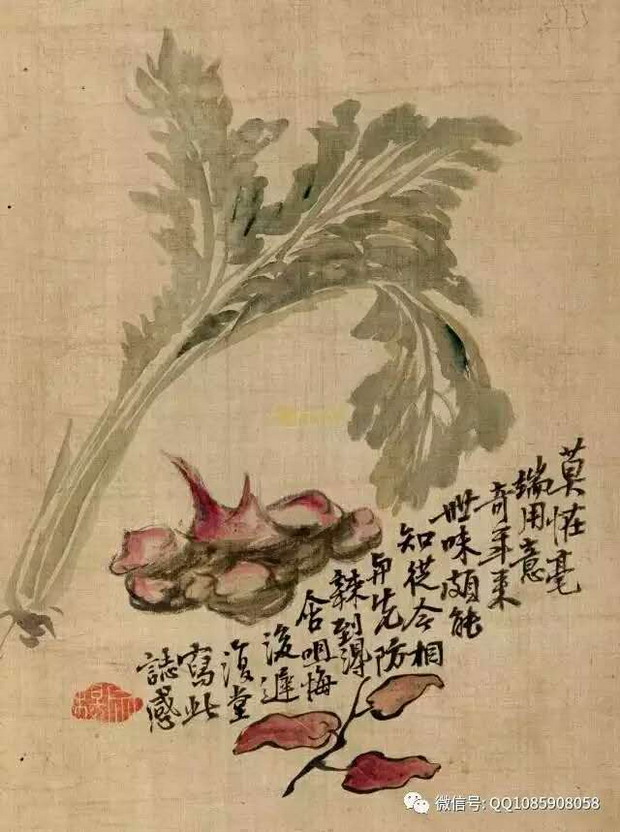 莫恠毫
端用意
奇年来
世味頗能
知從今相
與先防
辣到得
含咀悔
後遲
復堂
寫此
誌感
微信号: QQ1085908058